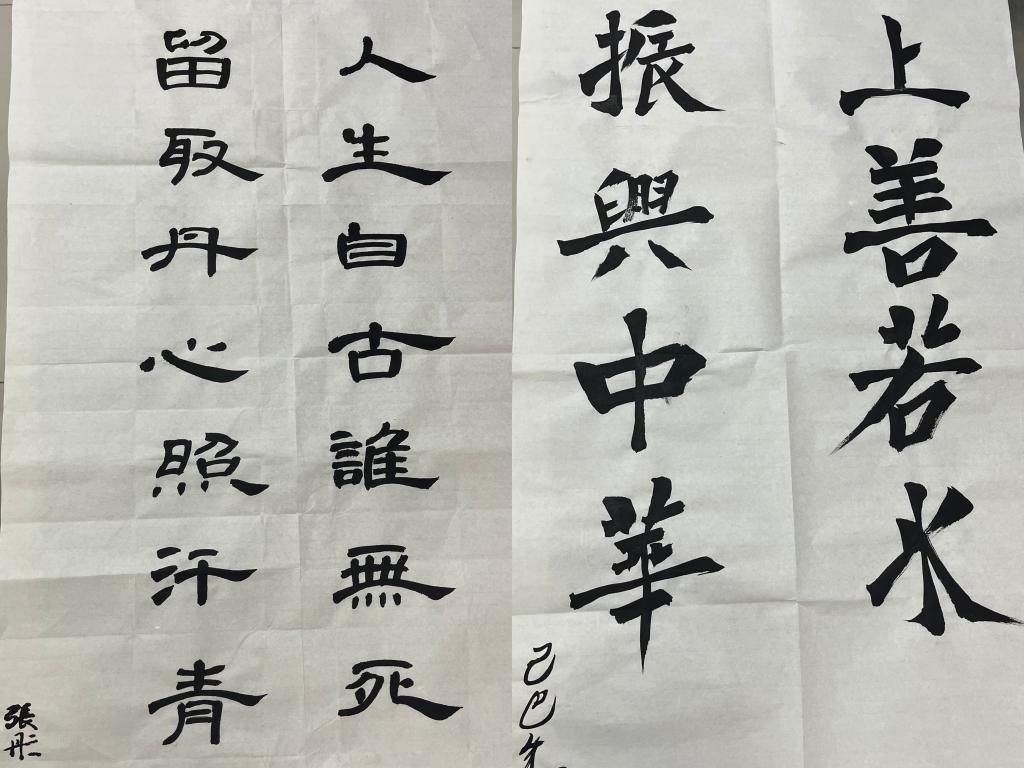 人生自古誰無死
留取丹心照汗青
張彤
上善若水
振興中華
己巳年